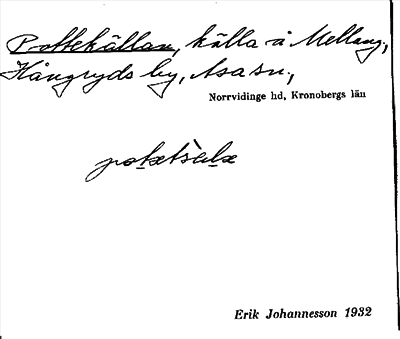 Pottekällan, källa å Mellang.,
Hångryds by, Asa sn.,
Norrvidinge hd, Kronobergs län
Erik Johannesson 1932